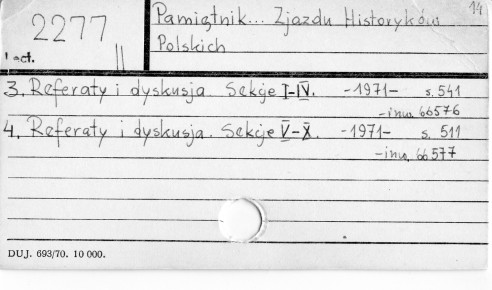 14
2277
Pamiętnik... Zjazdu Historyków
Polskich
II
3. Referaty i dyskusja. Sekcje I-IV. -1971- s. 541
-inw. 66576
4. Referaty i dyskusja. Sekcje V-X. -1971- s. 511
-inw. 66577
DUJ. 693/70. 10 000.